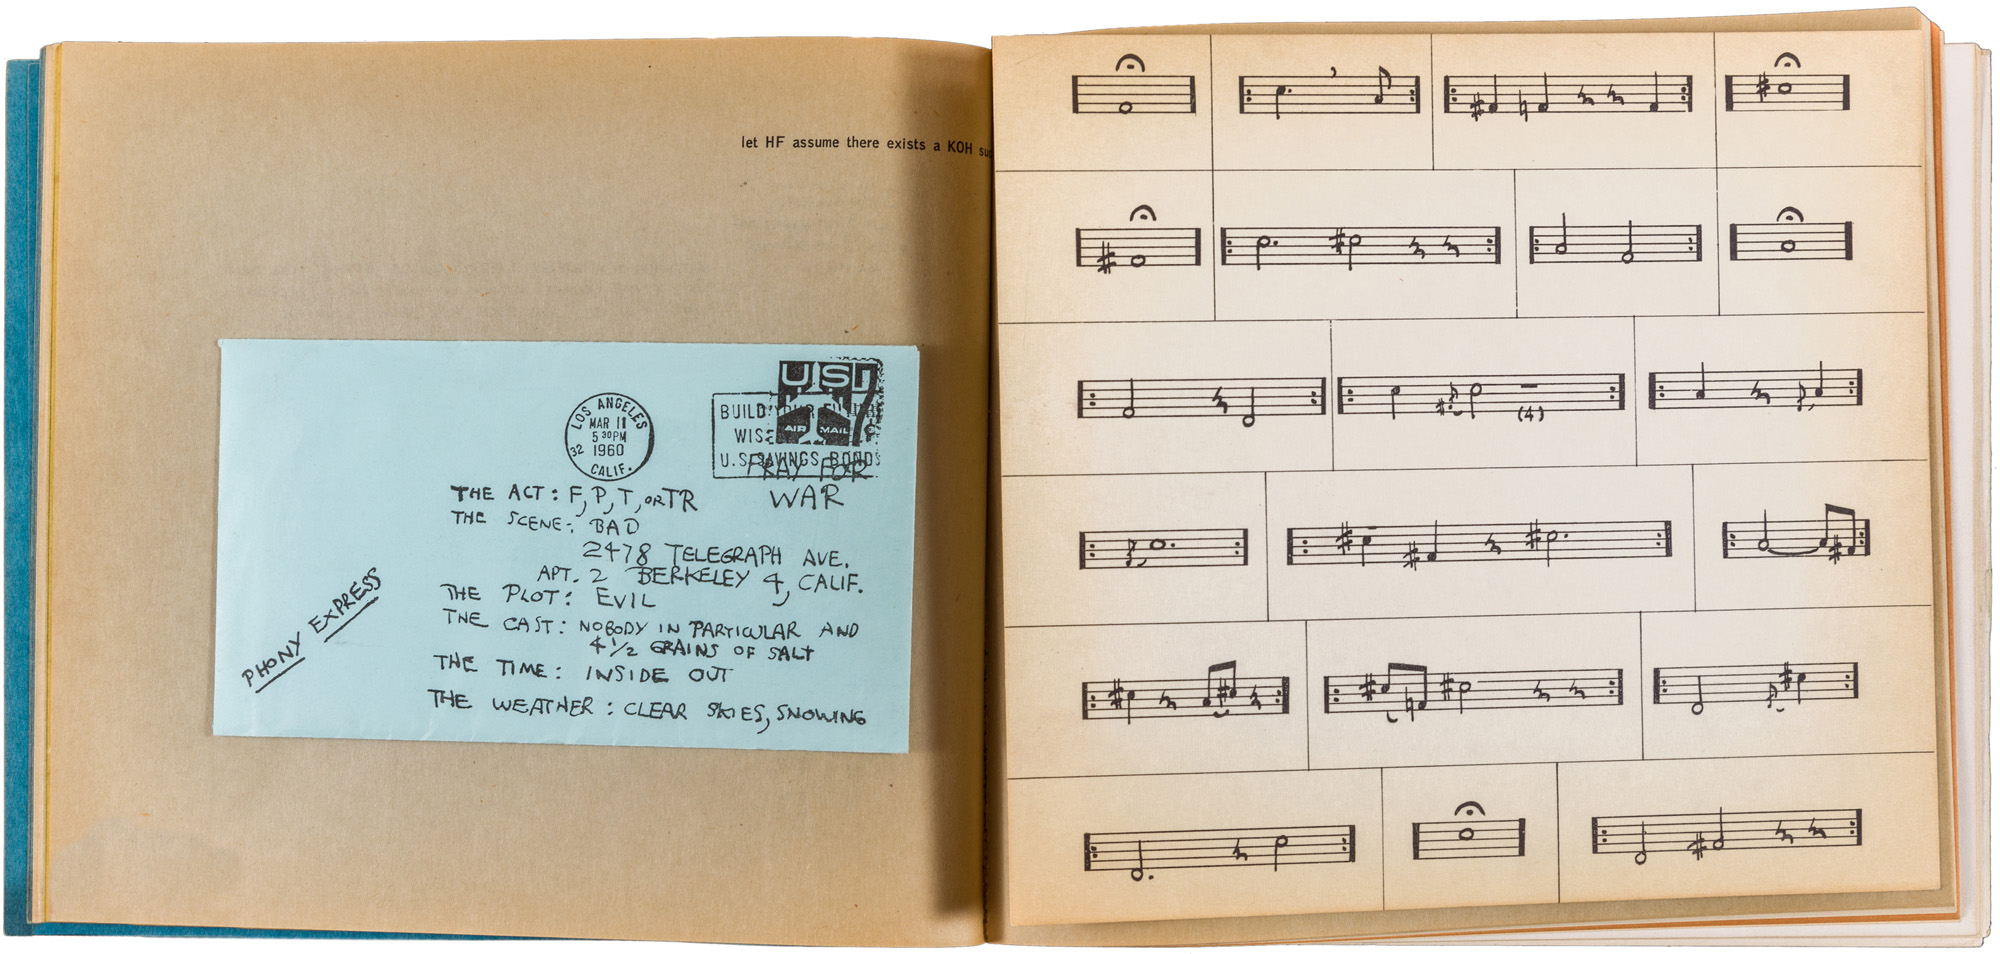 let HF assume there exists a KOH
LOS ANGELES
MAR 11
5 30 PM
1960
32
CALIF.
U.S.
BUILD YOUR
WISE
AIR MAIL
7¢
U.S. SAVINGS BONDS
PRAY FOR
WAR
THE ACT: F, P, T, OR TR
THE SCENE: BAD
2478 TELEGRAPH AVE.
APT. 2 BERKELEY 4, CALIF.
THE PLOT: EVIL
THE CAST: NOBODY IN PARTICULAR AND
4 1/2 GRAINS OF SALT
THE TIME: INSIDE OUT
THE WEATHER: CLEAR SKIES, SNOWING
PHONY EXPRESS
(4)